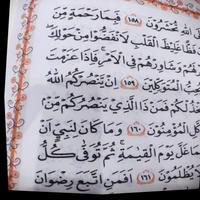 لَى اللَّهِ تُحْشَرُونَ ١٥٨ فَبِمَا رَحْمَةٍ مِنَ
ظًّا غَلِيظَ الْقَلْبِ لَانْفَضُّوا مِنْ حَوْلِكَ
هُمْ وَشَاوِرْهُمْ فِي الْأَمْرِ فَإِذَا عَزَمْتَ
بُّ الْمُتَوَكِّلِينَ ١٥٩ إِنْ يَنْصُرْكُمُ اللَّهُ
ذُلْكُمْ فَمَنْ ذَا الَّذِي يَنْصُرُكُمْ مِنْ
كَّلِ الْمُؤْمِنُونَ ١٦٠ وَمَا كَانَ لِنَبِيٍّ أَنْ
مَا غَلَّ يَوْمَ الْقِيَامَةِ ثُمَّ تُوَفَّى كُلُّ
لَا يُظْلَمُونَ ١٦١ أَفَمَنِ اتَّبَعَ رِضْوَانَ